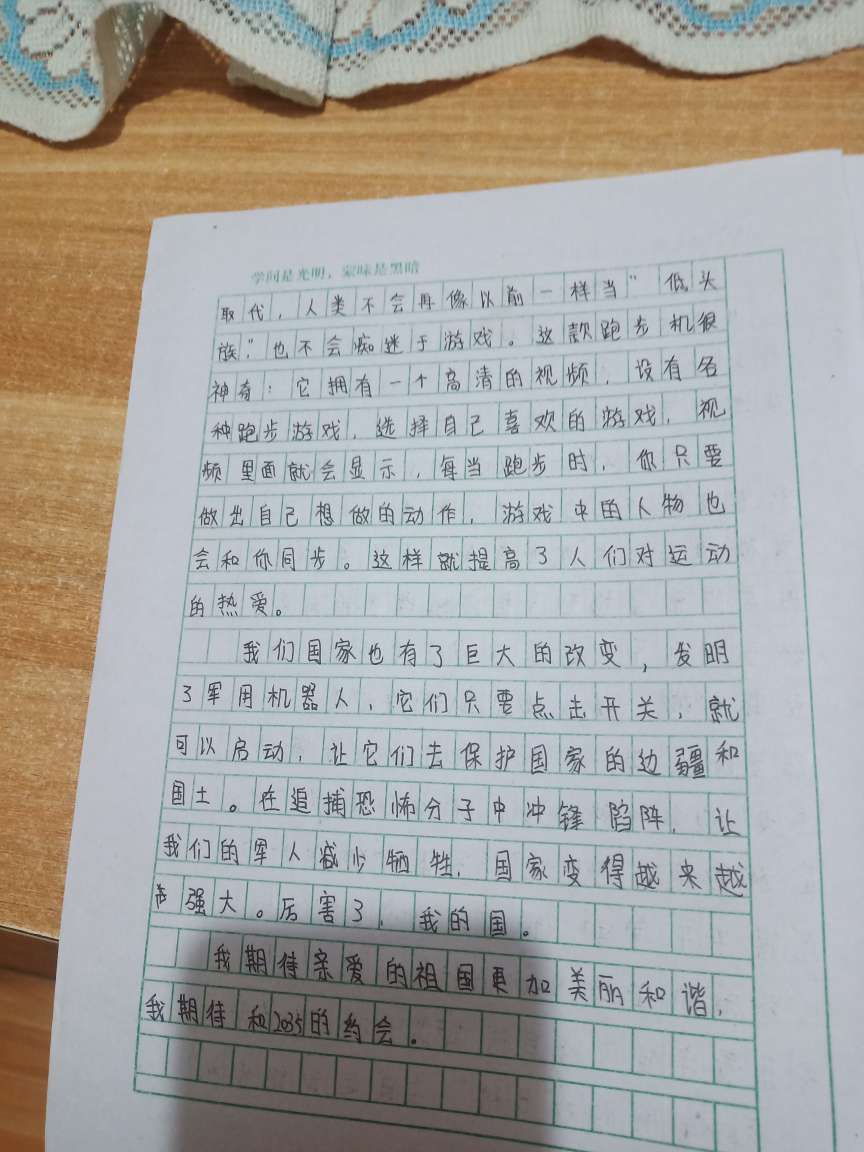 学问是光明，蒙昧是黑暗
取代，人类不会再像以前一样当"低头
族"也不会痴迷于游戏。这款跑步机很
神奇：它拥有一个高清的视频，设有各
种跑步游戏，选择自己喜欢的游戏，视
频里面就会显示，每当跑步时，你只要
做出自己想做的动作，游戏中的人物也
会和你同步。这样就提高了人们对运动
的热爱。
我们国家也有了巨大的改变，发明
了军用机器人，它们只要点击开关，就
可以启动，让它们去保护国家的边疆和
国土。在追捕恐怖分子中冲锋陷阵，让
我们的军人减少牺牲，国家变得越来越
强大。厉害了，我的国。
我期待亲爱的祖国更加美丽和谐，
我期待和2035的约会。